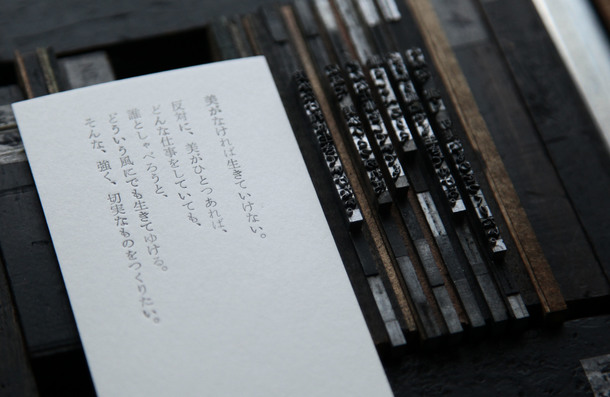 美がなければ生きていけない。
反対に、美がひとつあれば、
どんな仕事をしていても、
誰としゃべろうと、
どういう風にでも生きてゆける。
そんな、強く、切実なものをつくりたい。